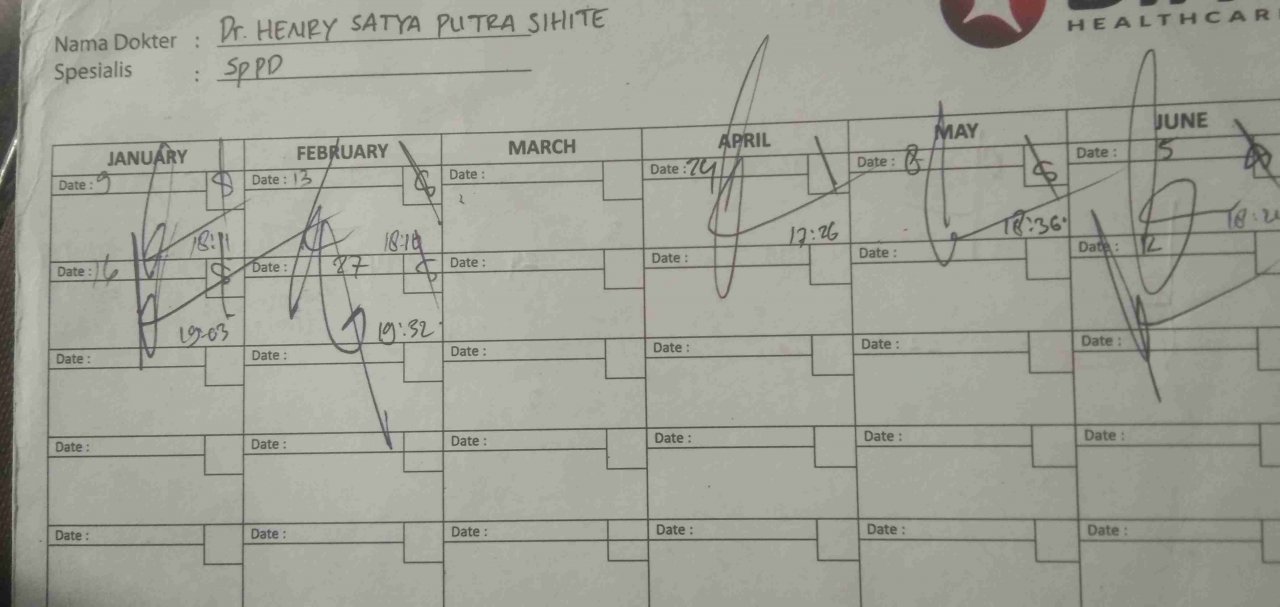 Nama Dokter : Dr. HENRY SATYA PUTRA SIHITE
HEALTHCAR
Spesialis : SPPD
JANUARY FEBRUARY MARCH APRIL MAY JUNE
Date : 9 Date : 13 Date : Date : 24 Date : 8 Date : 5
18:11 18:10 17:26 18:36
Date : 16 Date : 27 Date : Date : Date : Date : 12
19:03 19:32
Date : Date : Date : Date : Date : Date :
Date : Date : Date : Date : Date : Date :
Date : Date : Date : Date : Date : Date :